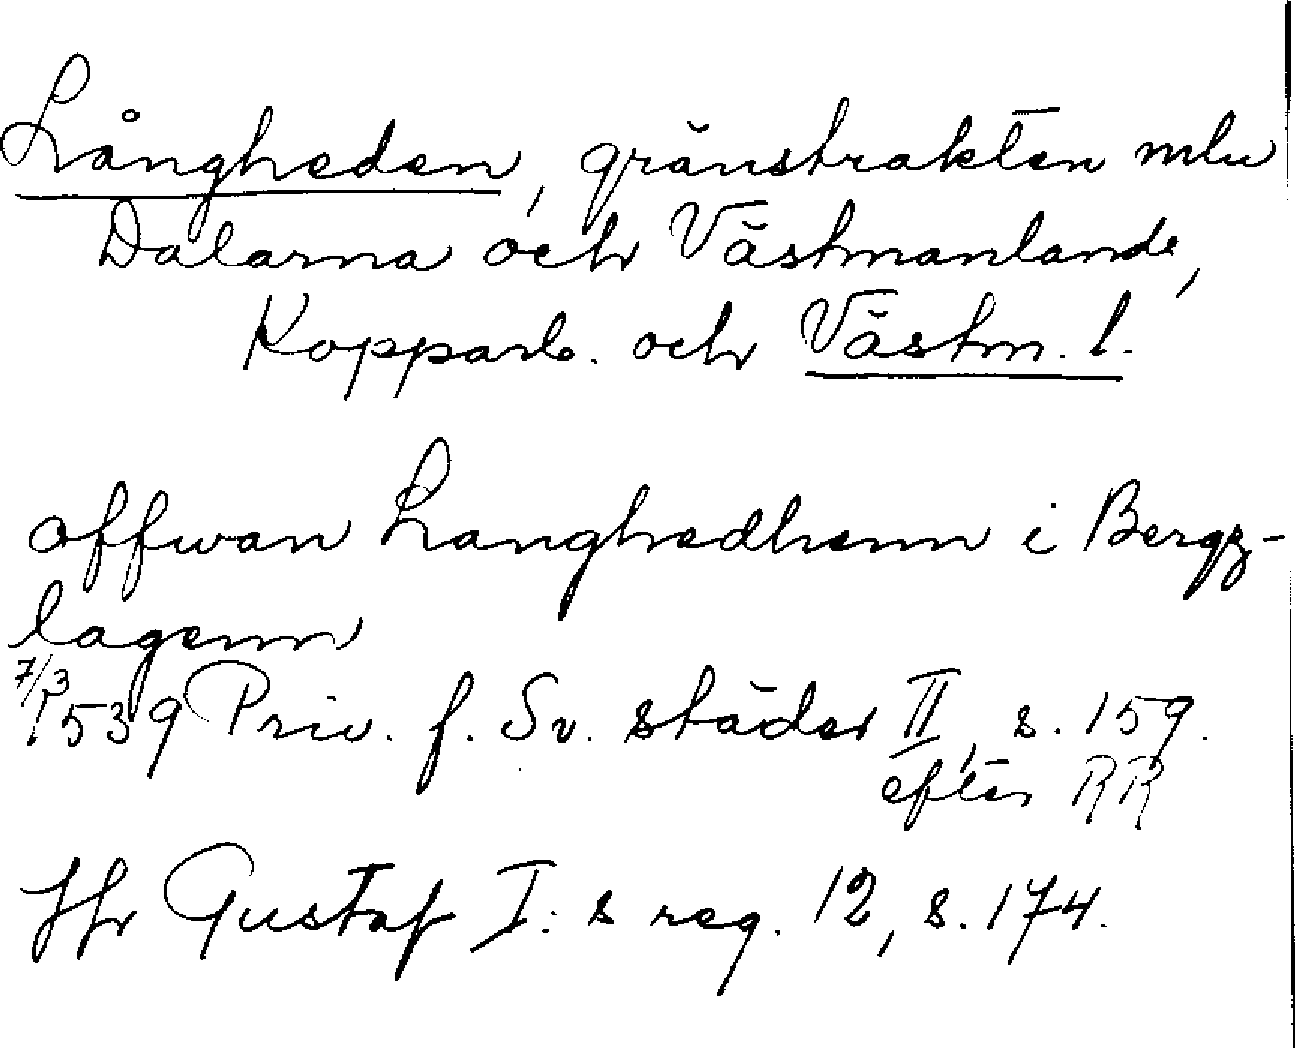 Långheden, gränstrakten mln
Dalarna och Västmanland,
Kopparb. och Västm. l.
offwan Langhedhenn i Bergz-
lagenn
7/3 1539 Priv. f. Sv. städer II, s. 159.
efter RR
Jfr Gustaf I:s reg. 12, s. 174.